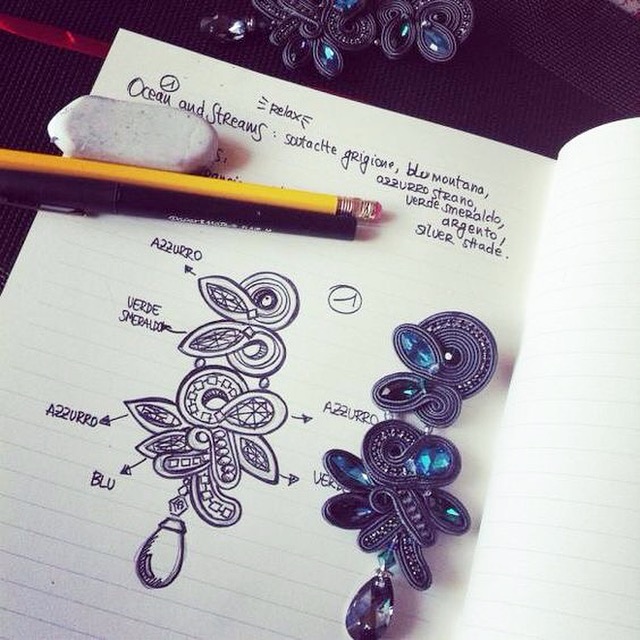 1
Ocean and Streams : soutactte grigione, blu montana,
=Relax=
azzurro strano,
verde smeraldo,
argento,
silver shade.
AZZURRO
VERDE
SMERALDO
1
AZZURRO
AZZURRO
BLU